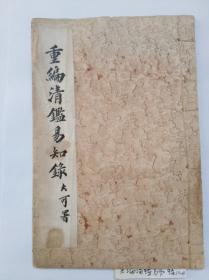 重编清鑑易知錄 大可署